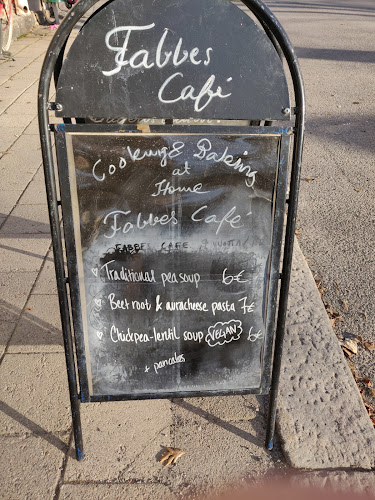 Fabbes
Café
Cooking & Baking
at
Home
Fabbes Café
FABBES CAFE
Traditional pea soup 6€
Beetroot & auracheese pasta 7€
Chickpea-lentil soup VEGAN 6€
+ pancakes